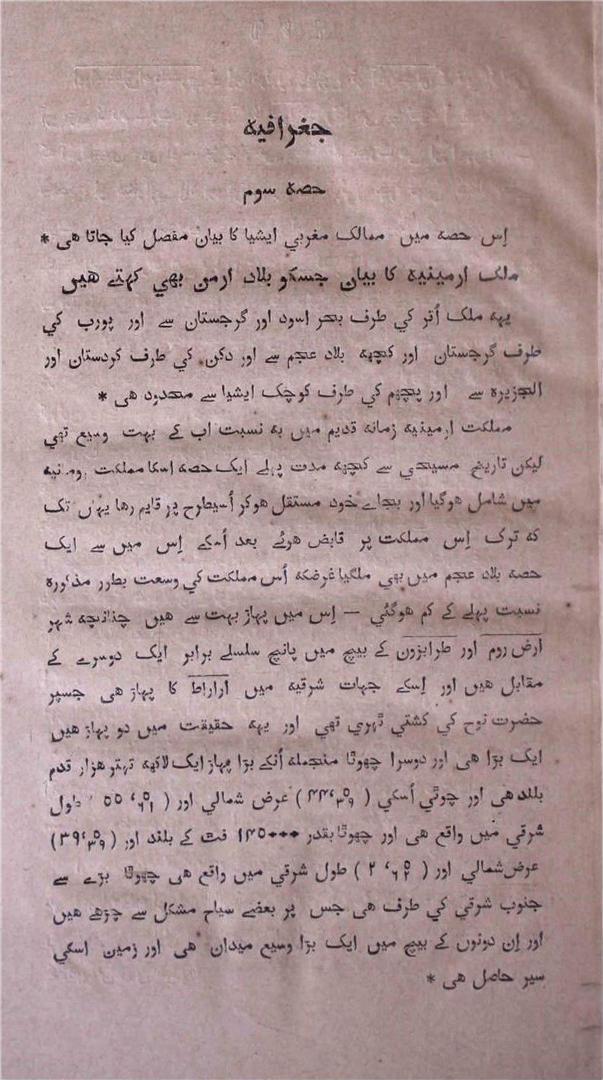 جغرافیه
حصه سوم
اِس حصه میں ممالک مغربي ایشیا کا بیان مفصل کیا جاتا هی *
ملک ارمینیه کا بیان جسکو بلاد ارمن بهي کہتے هیں
یہه ملک اُتر کي طرف بحر اسود اور گرجستان سے اور پورب کي
طرف گرجستان اور کچهه بلاد عجم سے اور دکن کي طرف کردستان اور
الجزیره سے اور پچهم کي طرف کوچک ایشیا سے محدود هی *
مملکت ارمینیه زمانه قدیم میں به نسبت اب کے بہت وسیع تهي
لیکن تاریخ مسیحي سے کچهه مدت پہلے ایک حصه اسکا مملکت رومانیه
میں شامل هوگیا اور بجاے خود مستقل هوکر اُسیطرح پر قایم رها یہاں تک
که ترک اِس مملکت پر قابض هوئے بعد اُسکے اِس میں سے ایک
حصه بلاد عجم میں بهي ملگیا غرضکه اُس مملکت کي وسعت بطور مذکوره
نسبت پہلے کے کم هوگئي — اِس میں پہاڑ بہت سے هیں چنانچه شہر
ارض روم اور طرابزون کے بیچ میں پانچ سلسلے برابر ایک دوسرے کے
مقابل هیں اور اِسکے جہات شرقیه میں اراراط کا پہاڑ هی جسپر
حضرت نوح کي کشتي ٹهري تهي اور یہه حقیقت میں دو پہاڑ هیں
ایک بڑا هی اور دوسرا چهوٹا منجمله اُنکے بڑا پہاڑ ایک لاکهه تہتر هزار قدم
بلند هی اور چوٹي اُسکي ( ) عرض شمالي اور ( ) طول
شرقي میں واقع هی اور چهوٹا بقدر فت کے بلند اور ( )
عرض شمالي اور ( ) طول شرقي میں واقع هی چهوٹا بڑے سے
جنوب شرقي کي طرف هی جس پر بعضے سیاح مشکل سے چڑهے هیں
اور اِن دونوں کے بیچ میں ایک بڑا وسیع میدان هی اور زمین اسکي
سیر حاصل هی *